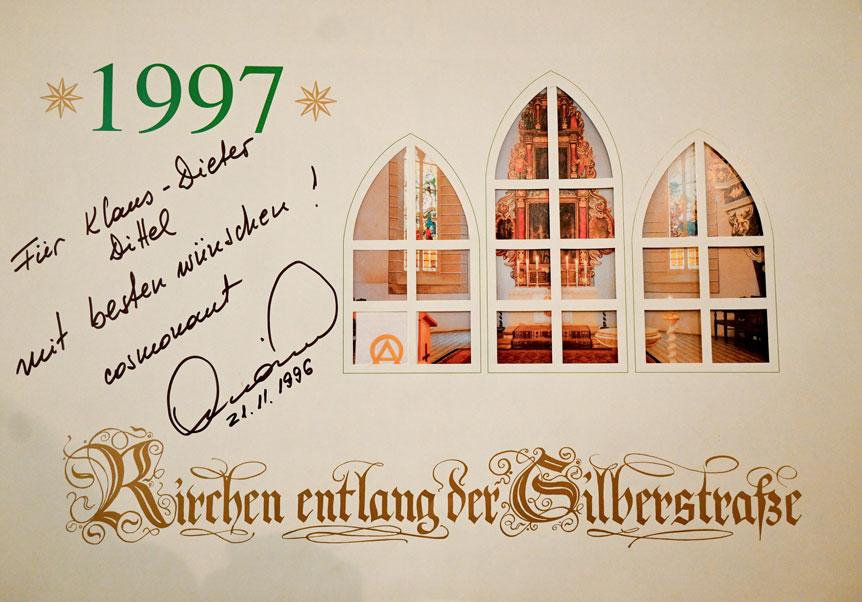 1997
Für Klaus-Dieter
Dittel
mit besten wünschen!
cosmonaut
21.11.1996
Kirchen entlang der Silberstraße